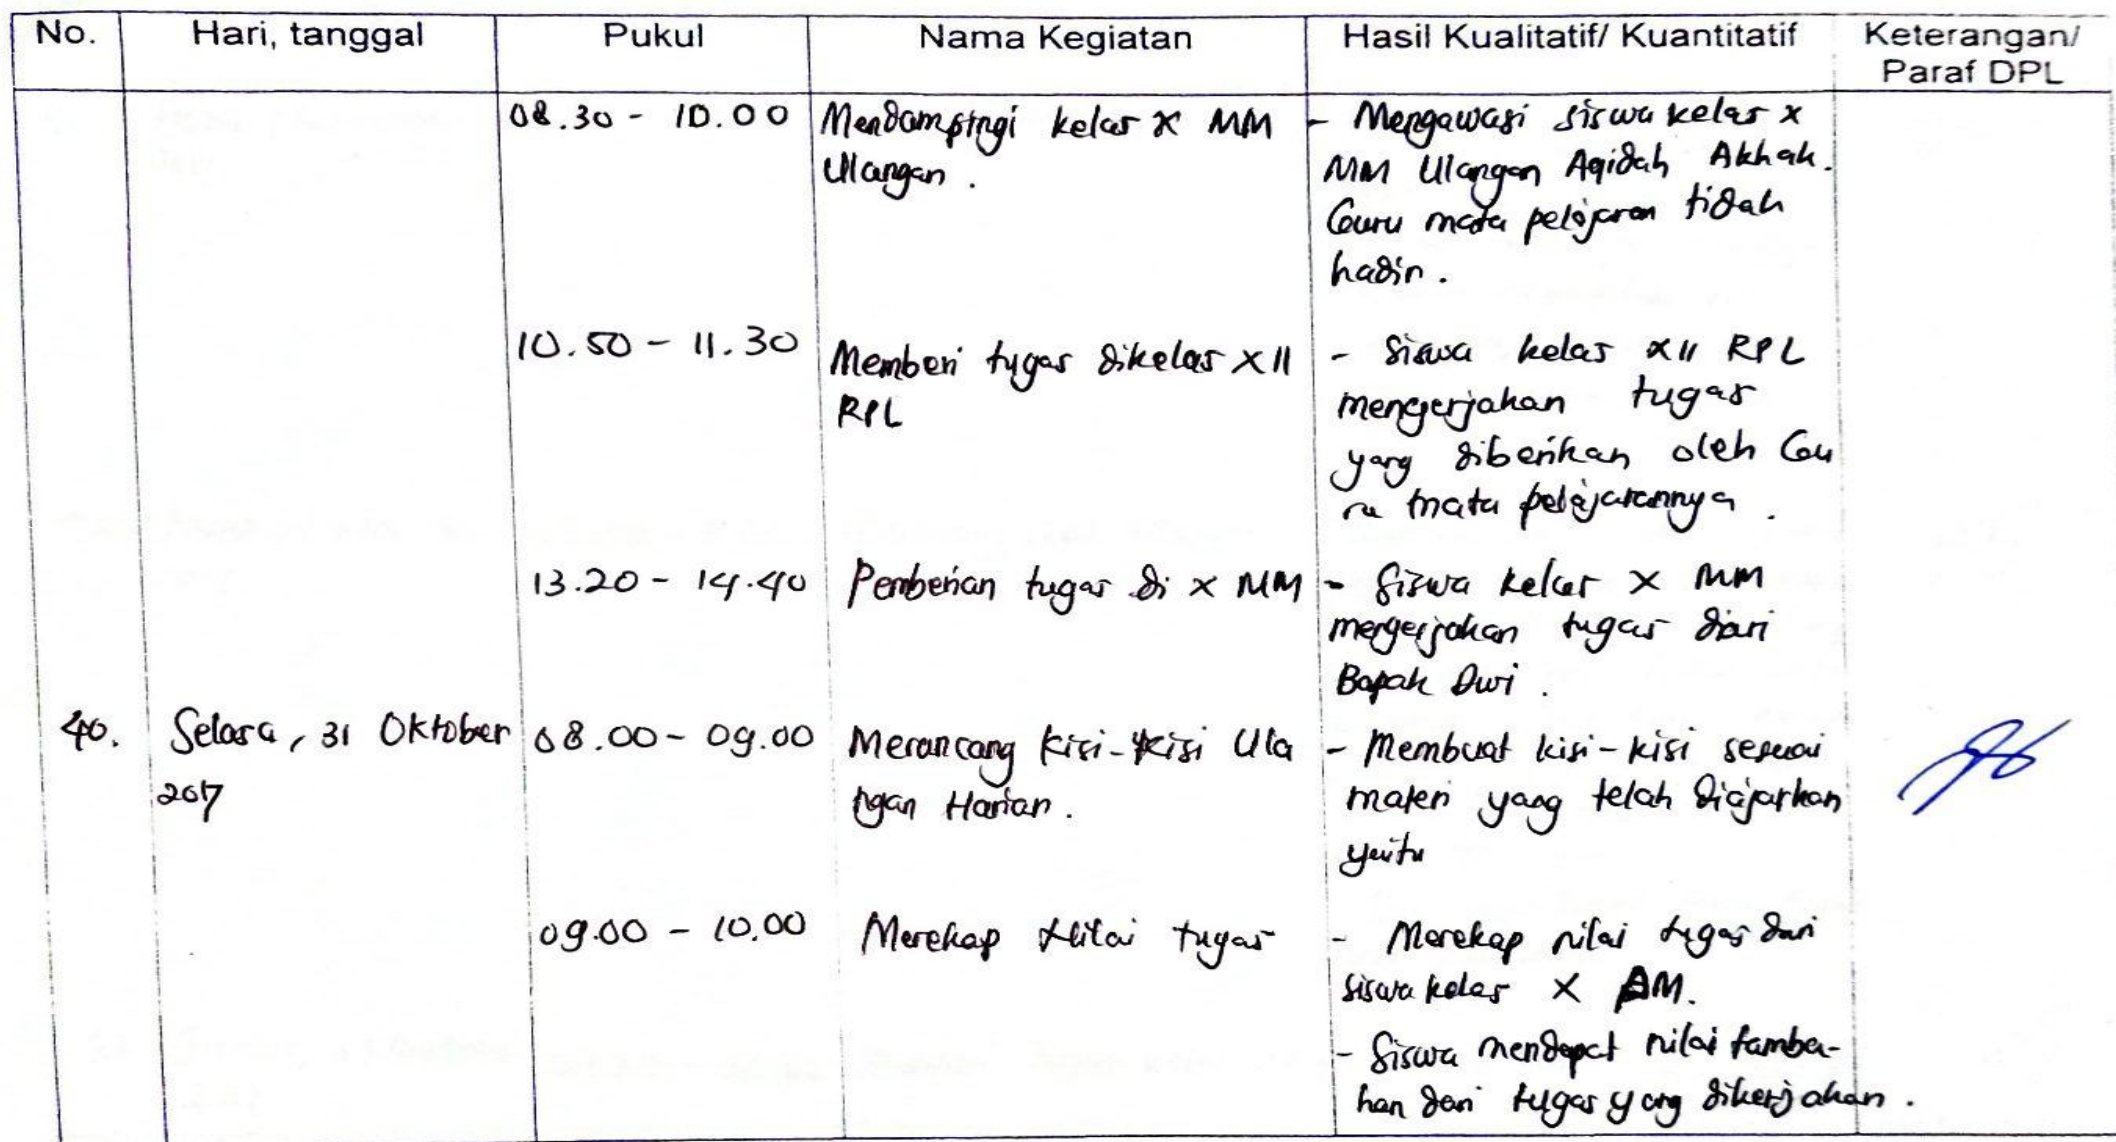 No. Hari, tanggal Pukul Nama Kegiatan Hasil Kualitatif/ Kuantitatif Keterangan/
Paraf DPL
08.30 - 10.00 Mendampingi kelas X MM - Mengawasi siswa kelas X
Ulangan. MM Ulangan Aqidah Akhak.
Guru mata pelajaran tidak
hadir.
10.50 - 11.30 Memberi tugas dikelas XII - Siswa kelas XII RPL
RPL mengerjakan tugas
yang diberikan oleh Gu
ru mata pelajarannya.
13.20 - 14.40 Pemberian tugas di X MM - Siswa kelas X MM
mengerjakan tugas dari
Bapak Dwi.
40. Selasa, 31 Oktober 08.00 - 09.00 Merancang kisi-kisi Ula - Membuat kisi-kisi sesuai
2017 ngan Harian. materi yang telah diajarkan
yaitu
09.00 - 10.00 Merekap Nilai tugas - Merekap nilai tugas dari
siswa kelas X AM.
- Siswa mendapat nilai tamba-
han dari tugas yang dikerjakan.